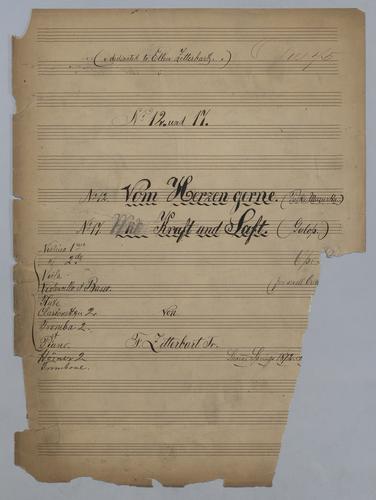 (dedicated to Ellen Zitterbart.)
No. 12. und 17.
No. 12. Vom Herzen gerne. (Polka Mazurka.)
No. 17. Mit Kraft und Saft. (Galop.)
Violino 1mo
" 2do
Viola
Violoncello et Basso.
Flute
Clarinetten 2. Von
Tromba 2.
et
Piano. F. Zitterbart Jr.
Hörner 2
Trombone.